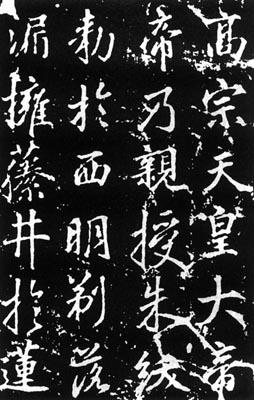 高宗天皇大帝
帝乃親授朱紱
勅於西明剃落
漏擁藤井於蓮